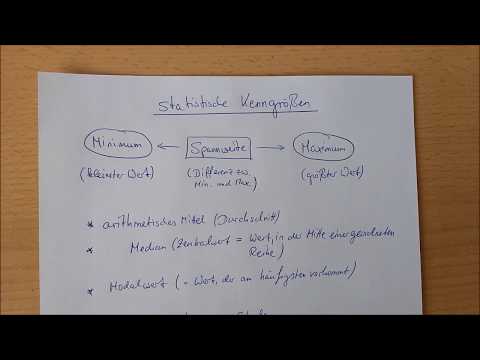 Statistische Kenngrößen
Minimum ← Spannweite → Maximum
(kleinster Wert) (Differenz zw. Min. und Max.) (größter Wert)
* arithmetisches Mittel (Durchschnitt)
* Median (Zentralwert = Wert, in der Mitte einer geordneten
Reihe)
* Modalwert (= Wert, der am häufigsten vorkommt)